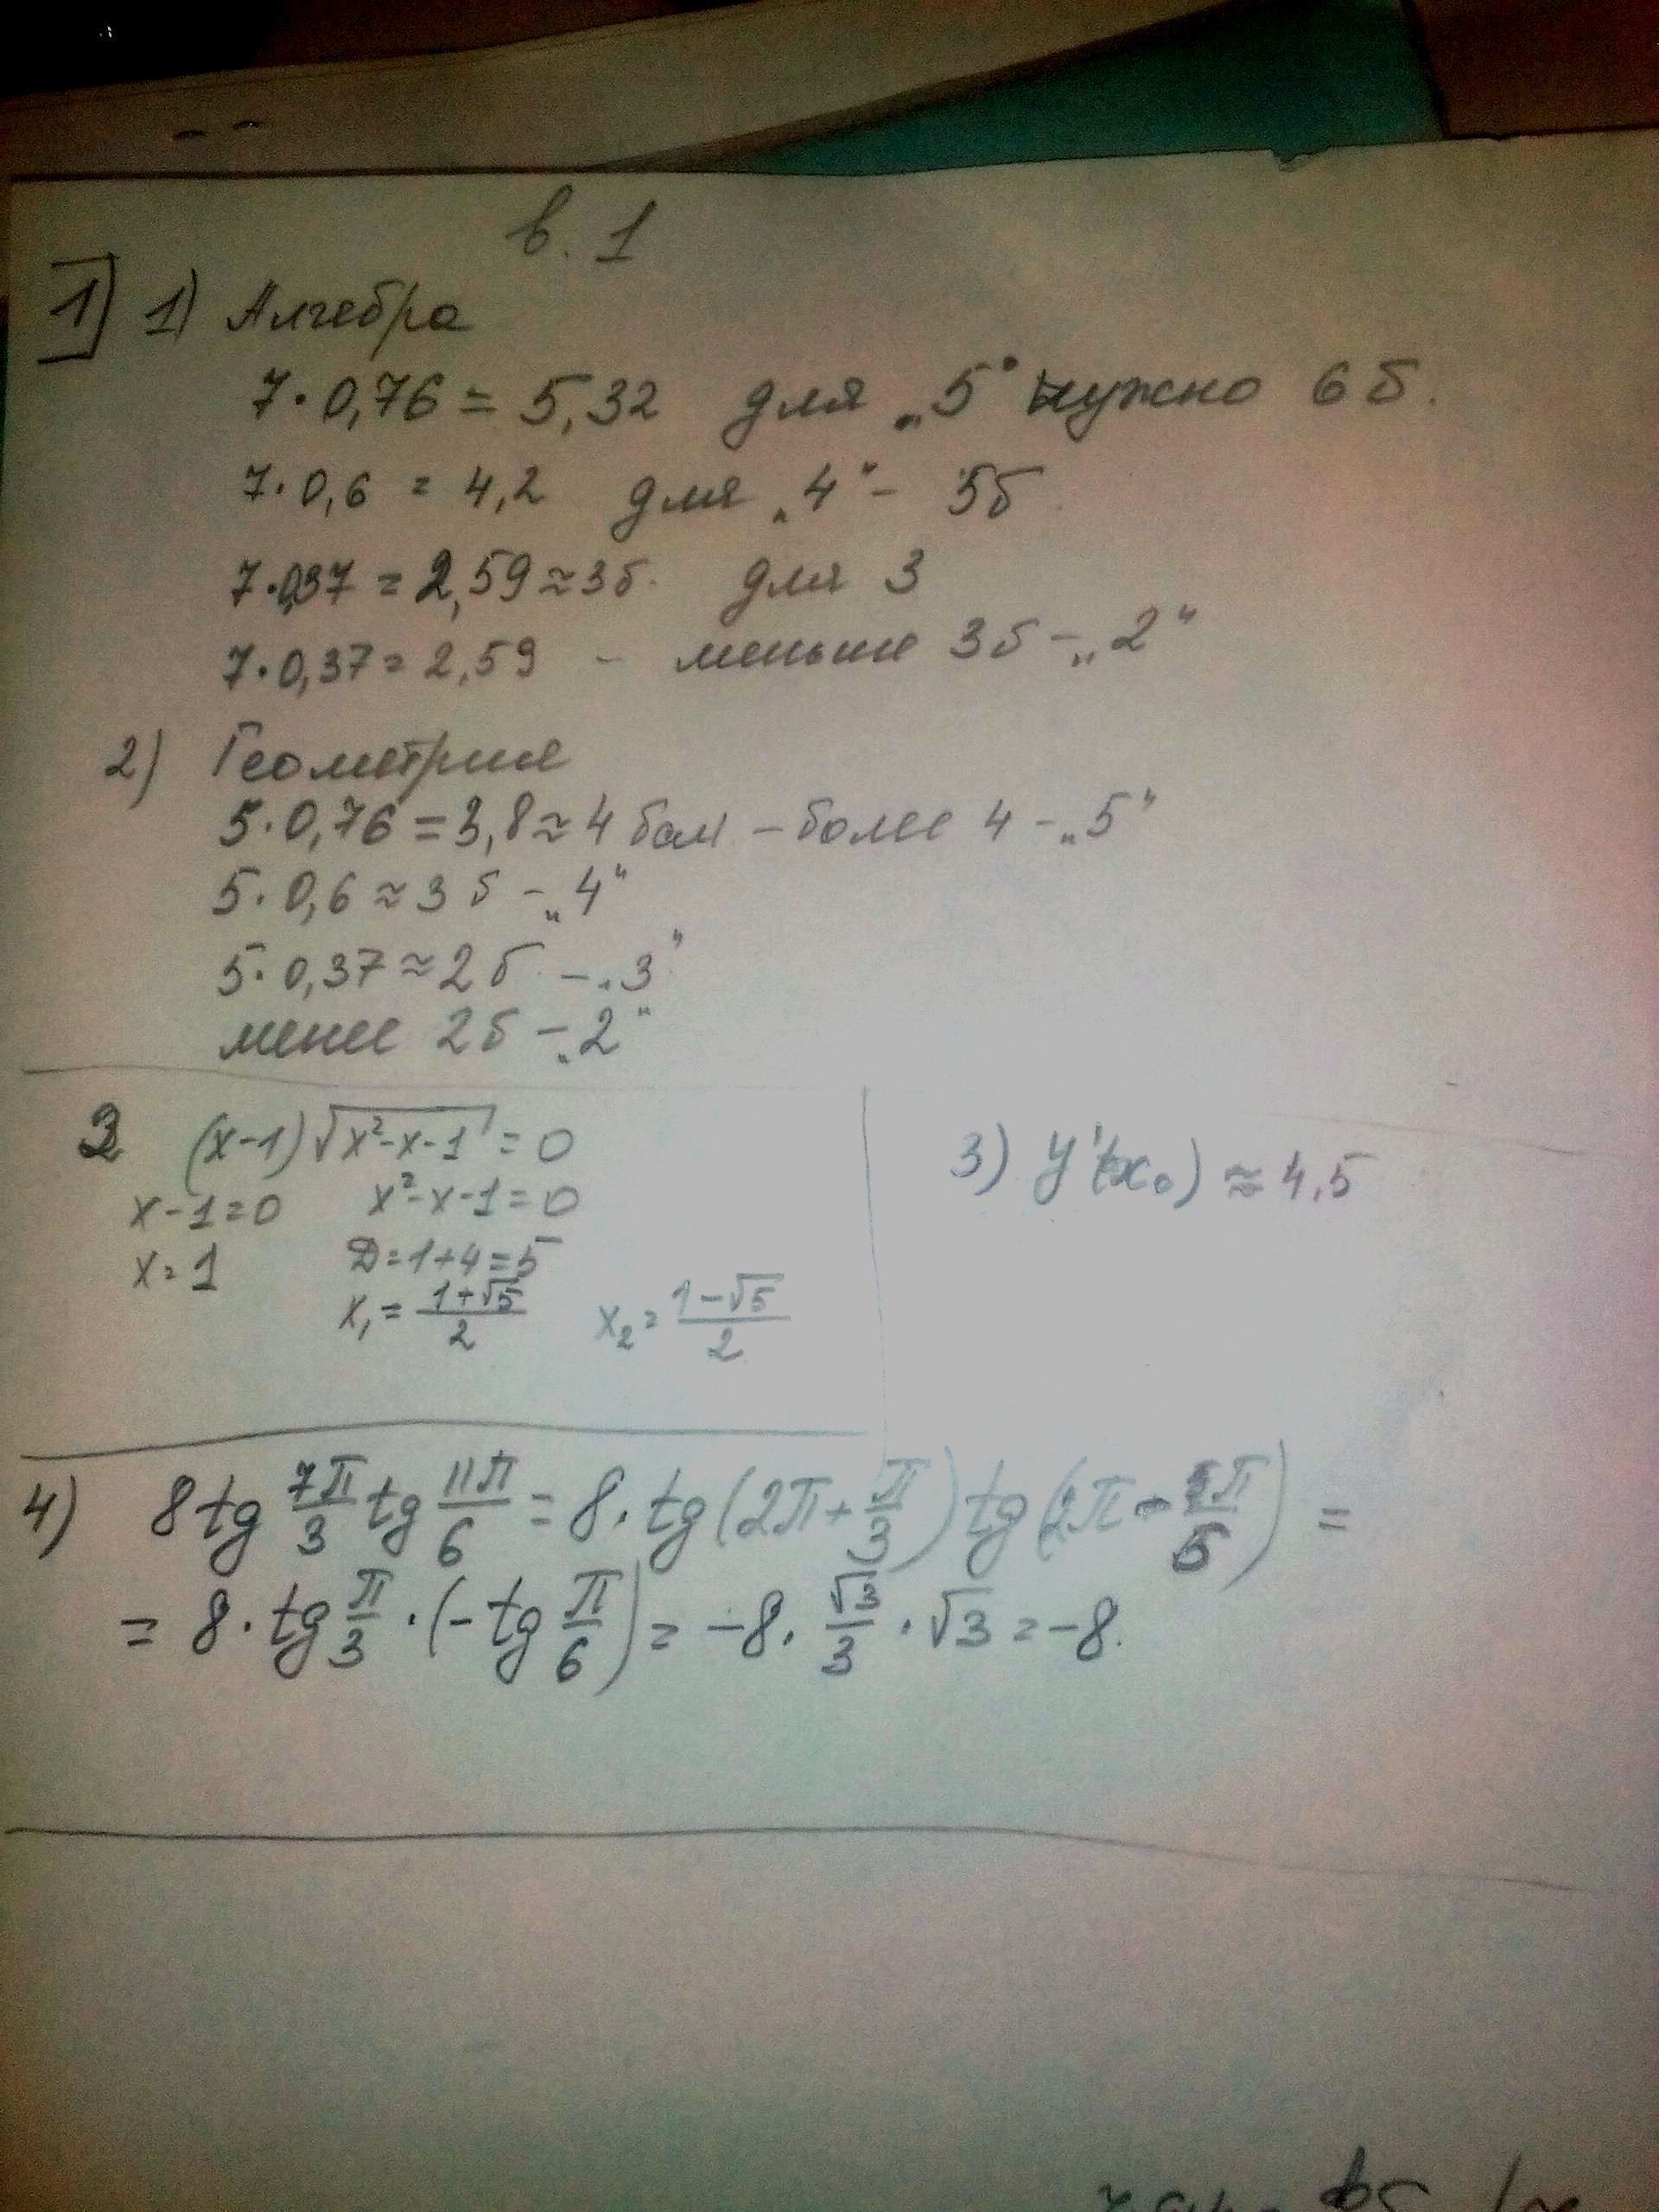 в. 1
1] 1) Алгебра
7·0,76 = 5,32 для „5" нужно 6 б.
7·0,6 = 4,2 для „4" – 5б
7·0,37 = 2,59 ≈ 3б. для 3
7·0,37 = 2,59 – меньше 3б – „2"
2) Геометрия
5·0,76 = 3,8 ≈ 4 бал – более 4 – „5"
5·0,6 ≈ 3 б – „4"
5·0,37 ≈ 2 б – „3"
менее 2б – „2"
2 (x-1)√(x²-x-1) = 0
x-1=0 x²-x-1=0
x=1 D=1+4=5
x₁ = (1+√5)/2 x₂ = (1-√5)/2
3) y'(x₀) ≈ 4,5
4) 8 tg 7π/3 tg 11π/6 = 8·tg(2π+π/3) tg(2π-π/5) =
= 8·tg π/3 ·(-tg π/6) = -8·√3/3·√3 = -8.